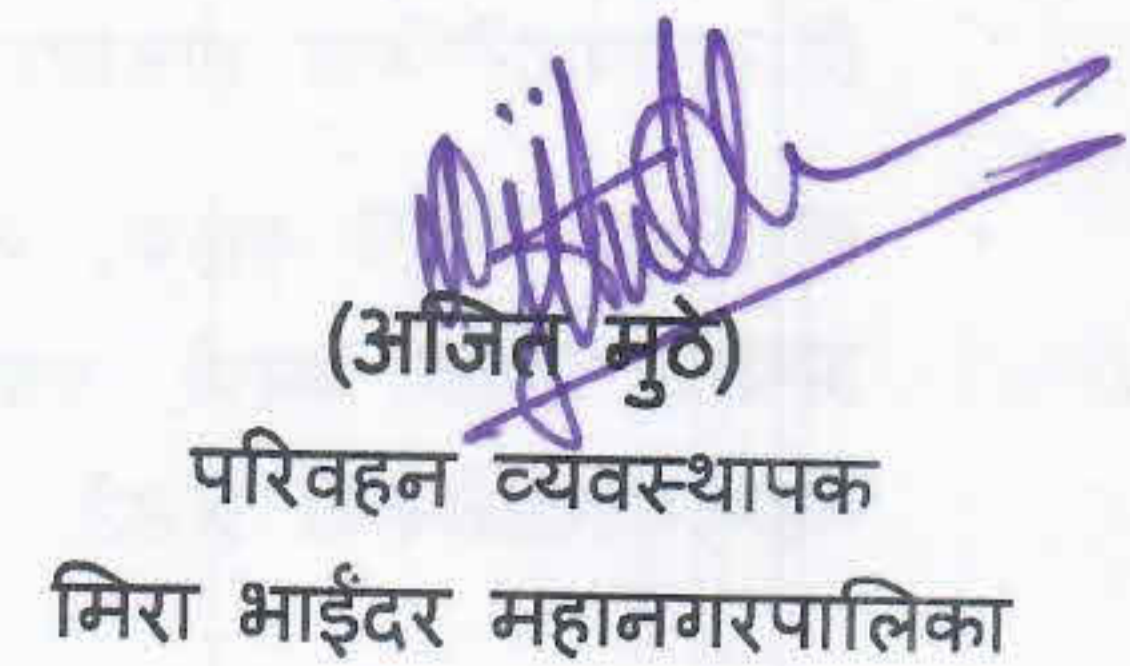 (अजित मुठे)
परिवहन व्यवस्थापक
मिरा भाईंदर महानगरपालिका